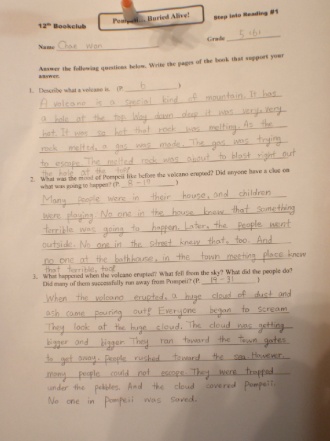 12th Bookclub
Pompeii... Buried Alive!
Step into Reading #1
Name Chae Won
Grade
Answer the following questions below. Write the pages of the book that support your
answer.
1. Describe what a volcano is. (P. 6 )
A volcano is a special kind of mountain. It has
a hole at the top. Way down deep it was very, very
hot. It was so hot that rock was melting. As the
rock melted, a gas was made. The gas was trying
to escape. The melted rock was about to blast right out
the hole at the top!
2. What was the mood of Pompeii like before the volcano erupted? Did anyone have a clue on
what was going to happen? (P. 8-10 )
Many people were in their house, and children
were playing. No one in the house knew that something
terrible was going to happen. Later, the people went
outside. No one in the street knew that, too. And
no one at the bathhouse, in the town meeting place knew
that terrible, too.
3. What happened when the volcano erupted? What fell from the sky? What did the people do?
Did many of them successfully run away from Pompeii? (P. 14-31 )
When the volcano erupted, a huge cloud of dust and
ash came pouring out! Everyone began to scream
They look at the huge cloud. The cloud was getting
bigger and bigger. They ran toward the town gates
to get away. People rushed toward the sea. However,
many people could not escape. They were trapped
under the pebbles. And the cloud covered Pompeii.
No one in Pompeii was saved.